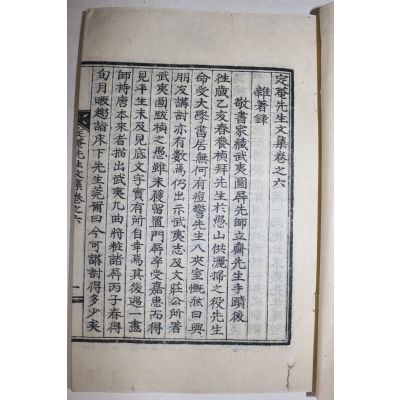 定菴先生文集卷之六
雜著錄
敬書家藏武夷圖屛師立齋先生手蹟後
往歲乙亥春養楨拜先生於愚山供灑掃之役先生
命受大學書居無何有痘警先生入夾室慨然曰與
朋友講討亦有數焉仍出示武夷志及文莊公所著
武夷圖跋楨之愚雖未獲留置門屛卒受嘉惠而得
見平生未及見底文字實有所自幸焉其後遇一畫
師持唐本來者描出武夷九曲將粧諸屛丙子春得
旬月暇趨詣床下先生莞爾曰今可講討得多少矣
定菴先生文集卷之六
一